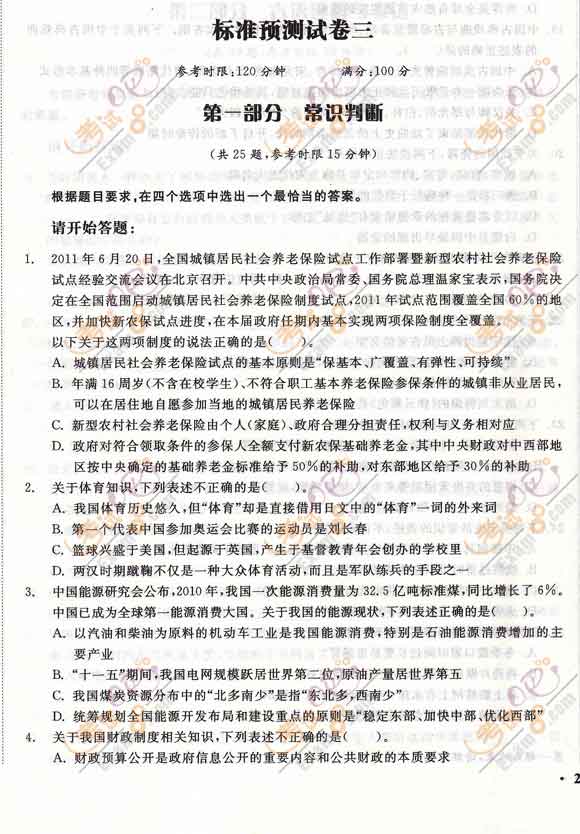 标准预测试卷三
参考时限:120分钟 满分:100分
第一部分 常识判断
(共25题,参考时限15分钟)
根据题目要求,在四个选项中选出一个最恰当的答案。
请开始答题:
1. 2011年6月20日,全国城镇居民社会养老保险试点工作部署暨新型农村社会养老保险
试点经验交流会议在北京召开。中共中央政治局常委、国务院总理温家宝表示,国务院决
定在全国范围启动城镇居民社会养老保险制度试点,2011年试点范围覆盖全国60%的地
区,并加快新农保试点进度,在本届政府任期内基本实现两项保险制度全覆盖。
以下关于这两项制度的说法正确的是( )。
A. 城镇居民社会养老保险试点的基本原则是“保基本、广覆盖、有弹性、可持续”
B. 年满16周岁(不含在校学生)、不符合职工基本养老保险参保条件的城镇非从业居民,
可以在居住地自愿参加当地的城镇居民养老保险
C. 新型农村社会养老保险由个人(家庭)、政府合理分担责任,权利与义务相对应
D. 政府对符合领取条件的参保人全额支付新农保基础养老金,其中中央财政对中西部地
区按中央确定的基础养老金标准给予50%的补助,对东部地区给予30%的补助
2. 关于体育知识,下列表述不正确的是( )。
A. 我国体育历史悠久,但“体育”却是直接借用日文中的“体育”一词的外来词
B. 第一个代表中国参加奥运会比赛的运动员是刘长春
C. 篮球兴盛于美国,但起源于英国,产生于基督教青年会创办的学校里
D. 两汉时期蹴鞠不仅是一种大众体育活动,而且是军队练兵的手段之一
3. 中国能源研究会公布,2010年,我国一次能源消费量为32.5亿吨标准煤,同比增长了6%。
中国已成为全球第一能源消费大国。关于我国的能源现状,下列表述正确的是( )。
A. 以汽油和柴油为原料的机动车工业是我国能源消费,特别是石油能源消费增加的主
要产业
B. “十一五”期间,我国电网规模跃居世界第二位,原油产量居世界第五
C. 我国煤炭资源分布中的“北多南少”是指“东北多,西南少”
D. 统筹规划全国能源开发布局和建设重点的原则是“稳定东部、加快中部、优化西部”
4. 关于我国财政制度相关知识,下列表述不正确的是( )。
A. 财政预算公开是政府信息公开的重要内容和公共财政的本质要求
· 2
考试
Exam8.com